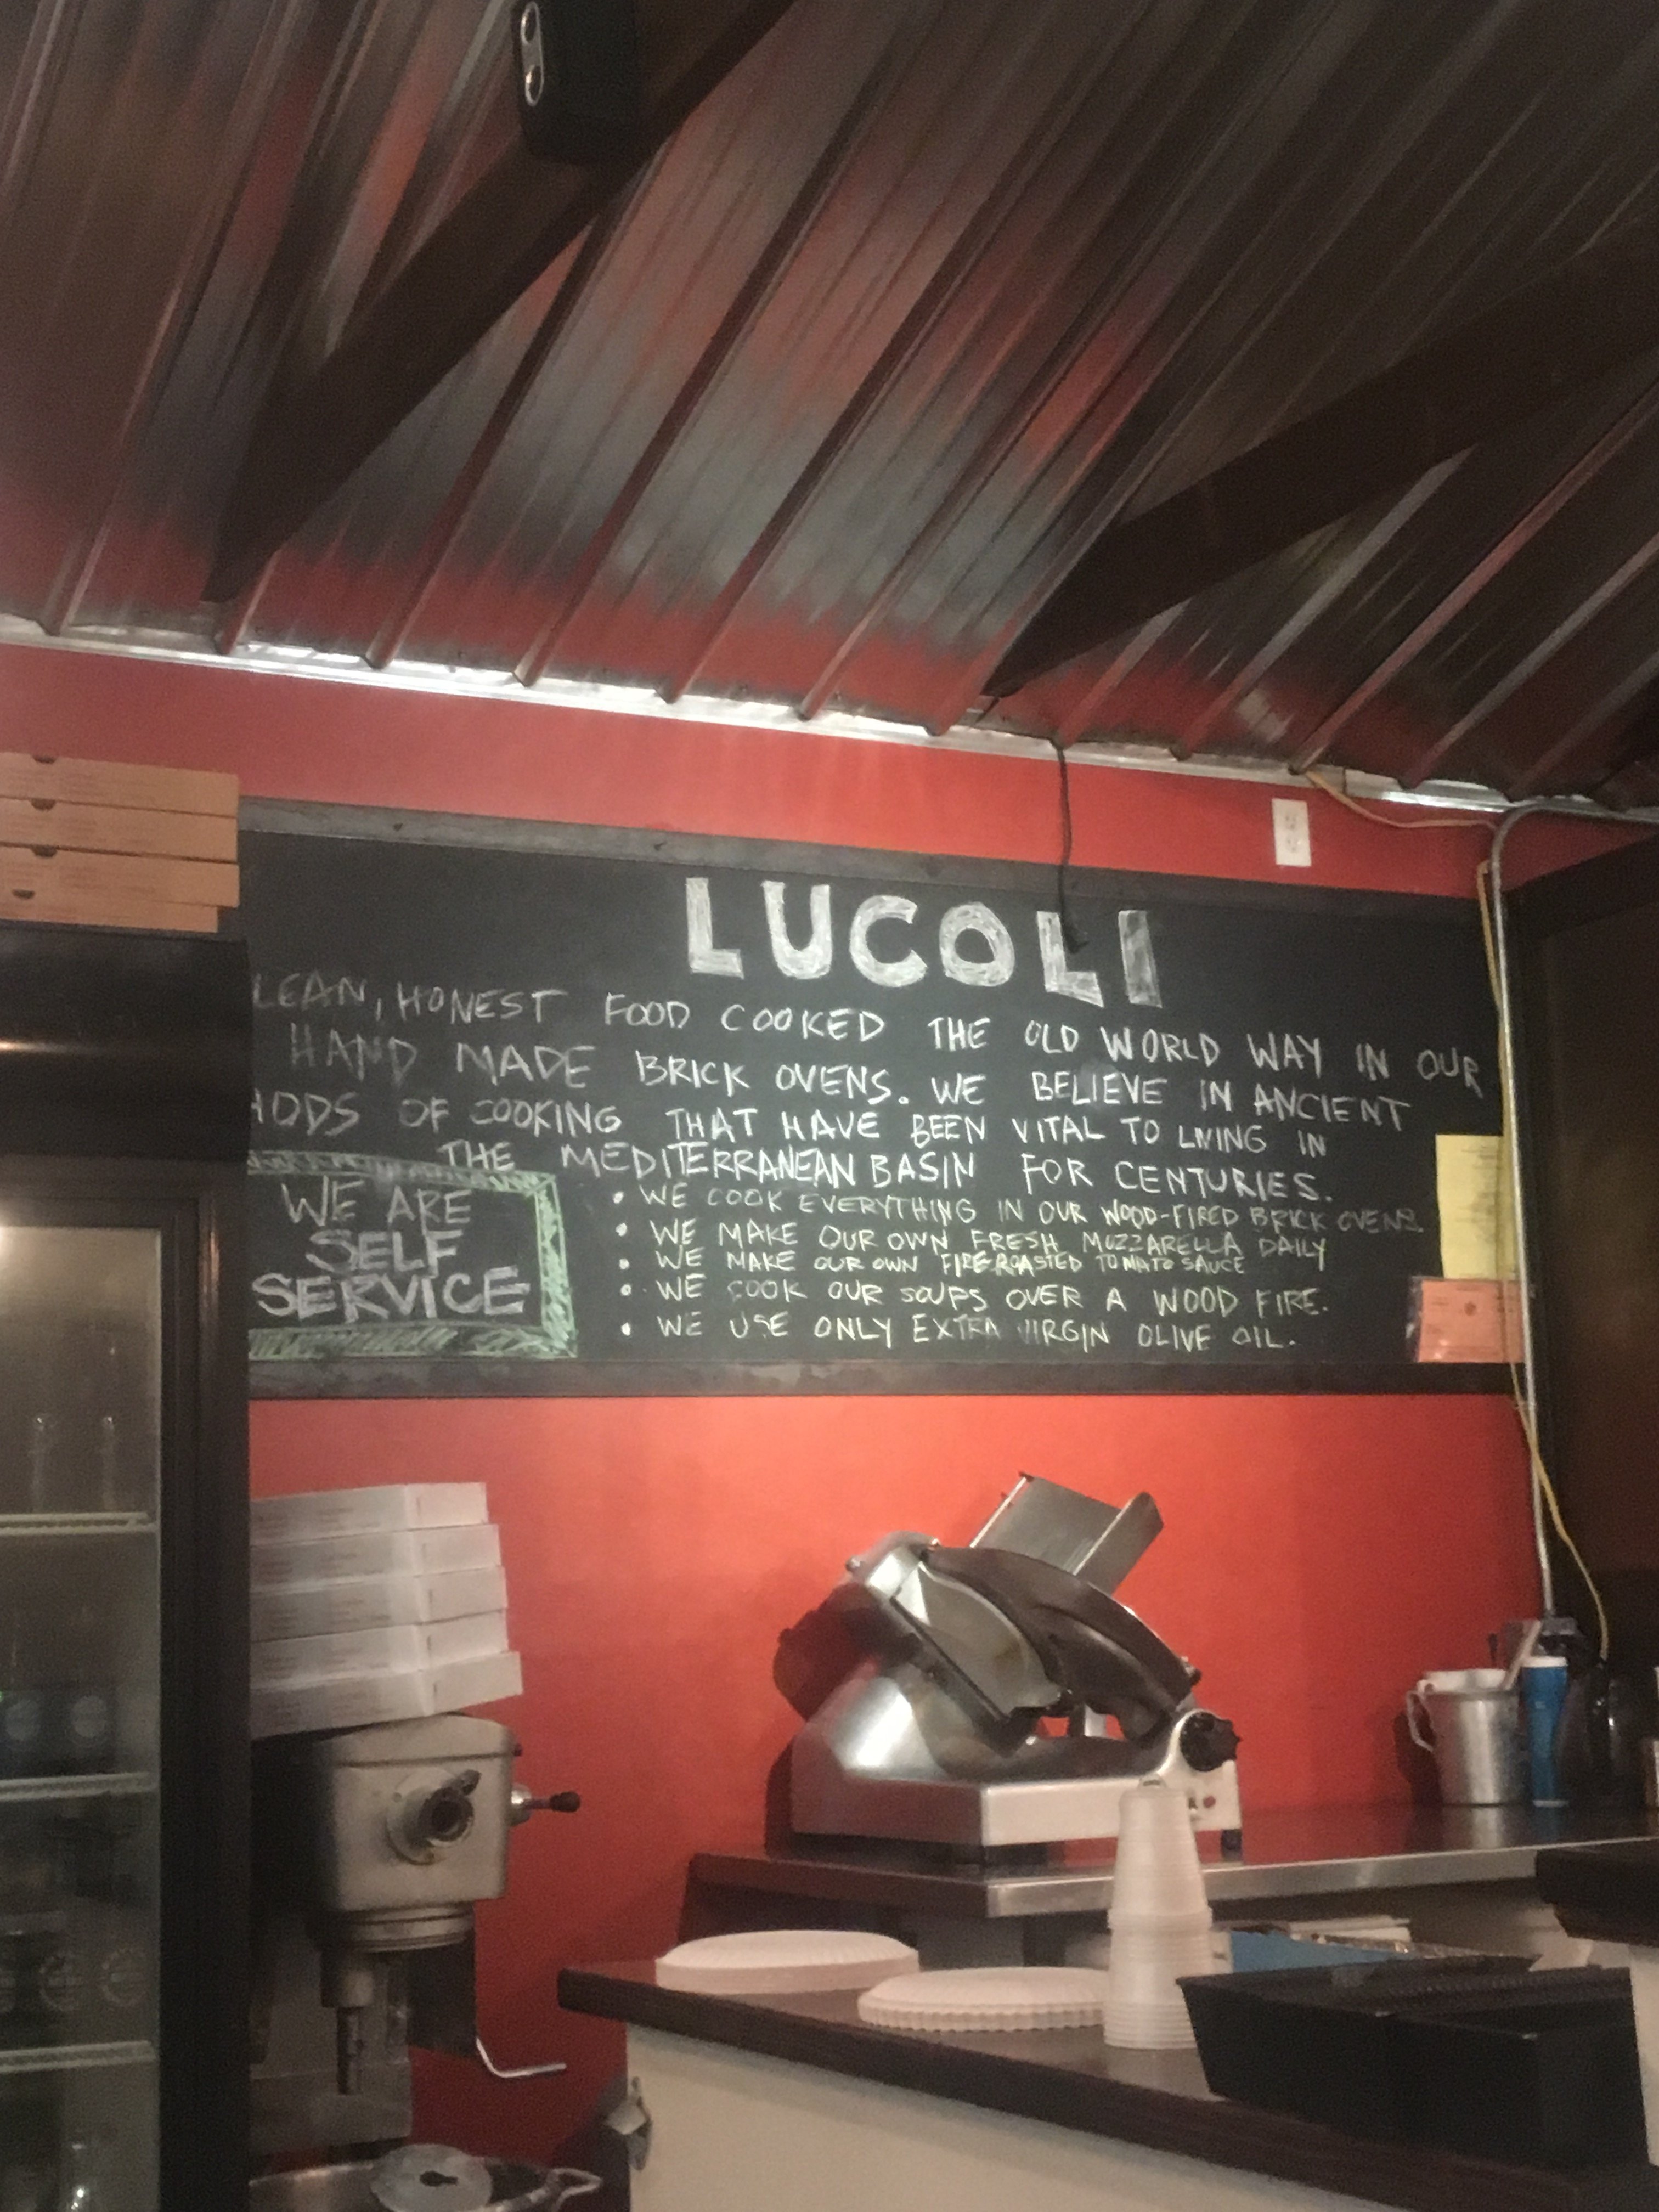 LUCOLI
LEAN, HONEST FOOD COOKED THE OLD WORLD WAY IN OUR
HAND MADE BRICK OVENS. WE BELIEVE IN ANCIENT
HODS OF COOKING THAT HAVE BEEN VITAL TO LIVING IN
THE MEDITERRANEAN BASIN FOR CENTURIES.
WE ARE
SELF
SERVICE
• WE COOK EVERYTHING IN OUR WOOD-FIRED BRICK OVENS.
• WE MAKE OUR OWN FRESH MUZZARELLA DAILY
• WE MAKE OUR OWN FIRE-ROASTED TOMATO SAUCE
• WE COOK OUR SOUPS OVER A WOOD FIRE.
• WE USE ONLY EXTRA VIRGIN OLIVE OIL.